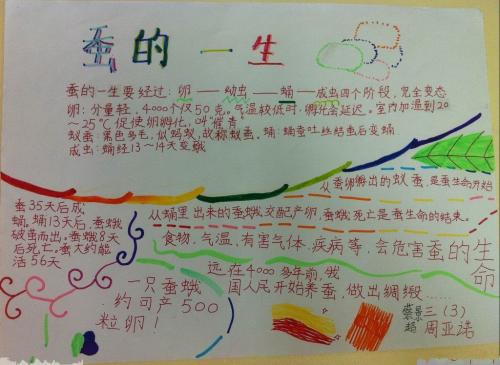 蚕的一生
蚕的一生要经过：卵——幼虫——蛹——成虫四个阶段，完全变态
卵：分量轻，4000个仅50克。气温较低时，孵化会延迟。室内加温到20
～25℃促使卵孵化，叫“催青”
蚁蚕：黑色多毛，似蚂蚁，故称蚁蚕。蛹：蛹蚕吐丝结茧后变蛹
成虫：蛹经13～14天变蛾
从蚕卵孵出的蚁蚕，是蚕生命开始
蚕35天后成
蛹。蛹13天后，蚕蛾
破茧而出。蚕蛾8天
后死亡。蚕大约能
活56天
从蛹里出来的蚕蛾交配产卵，蚕蛾死亡是蚕生命的结束。
食物，气温，有害气体，疾病等，会危害蚕的生命
远在4000多年前，我
国人民开始养蚕，做出绸缎……
一只蚕蛾
约可产500
粒卵！
三（3）
周亚诺